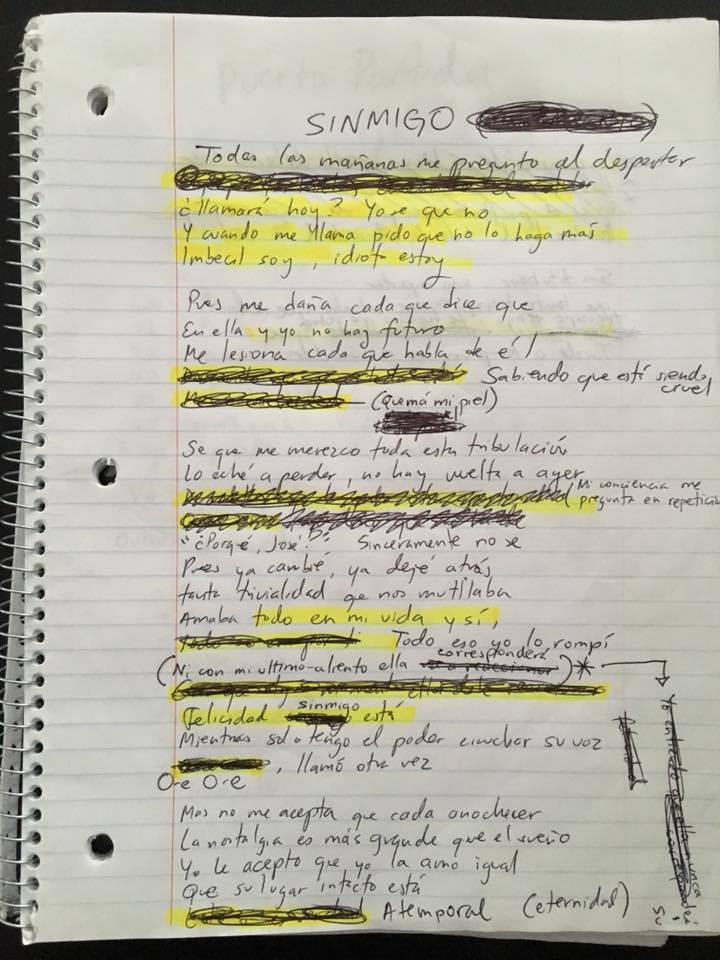 SINMIGO
Todas las mañanas me pregunto al despertar
¿llamará hoy? Yo se que no
Y cuando me llama pido que no lo haga más
Imbecil soy, idiota estoy
Pues me daña cada que dice que
En ella y yo no hay futuro
Me lesiona cada que habla de él
Sabiendo que está siendo cruel
(Quemá mi piel)
Se que me merezco toda esta tribulación
Lo eché a perder, no hay vuelta a ayer
Mi conciencia me
pregunta en repetición
"¿Porqué, José?" Sinceramente no se
Pues ya cambié, ya dejé atrás
tanta trivialidad que nos mutilaba
Amaba todo en mi vida y sí,
Todo eso yo lo rompí
(Ni con mi ultimo aliento ella corresponderá) *
Felicidad sinmigo está
Mientras solo tengo el poder escuchar su voz
, llamó otra vez
Ore Ore
Mas no me acepta que cada anochecer
La nostalgia es más grande que el sueño
Yo le acepto que yo la amo igual
Que su lugar intacto está
Atemporal (eternidad)